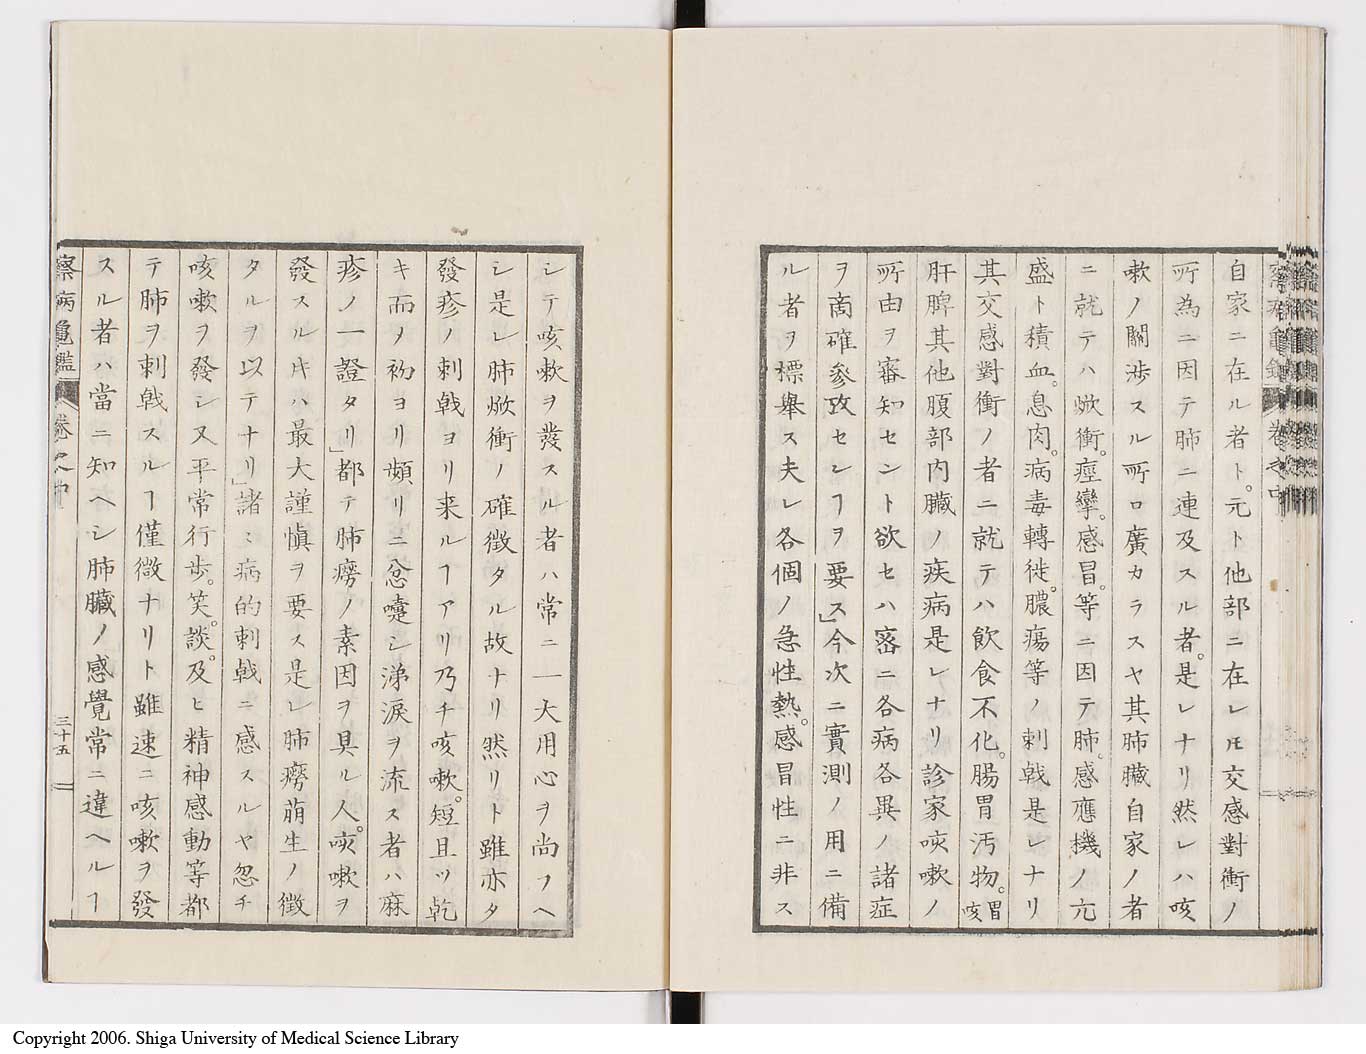 自家ニ在ル者ト。元ト他部ニ在レ𪜈交感對衝ノ
所為ニ因テ肺ニ連及スル者。是レナリ然レハ咳
嗽ノ關渉スル所ロ廣カラスヤ其肺臓自家ノ者
ニ就テハ焮衝。痙攣。感冒。等ニ因テ肺。感應機ノ亢
盛ト積血。息肉。病毒轉徙。膿瘍等ノ刺戟是レナリ
其交感對衝ノ者ニ就テハ飲食不化。腸胃汚物。胃咳
肝脾其他腹部内臓ノ疾病是レナリ診家咳嗽ノ
所由ヲ審知セント欲セハ宻ニ各病各異ノ諸症
ヲ商確參攷セシヿヲ要ス」今次ニ實測ノ用ニ備
ル者ヲ標舉ス夫レ各個ノ急性熱。感冒性ニ非ス
察病龜鑑 卷之中
シテ咳嗽ヲ發スル者ハ常ニ一大用心ヲ尚フヘ
シ是レ肺焮衝ノ確徴タル故ナリ然リト雖亦タ
發疹ノ刺戟ヨリ来ルヿアリ乃チ咳嗽。短且ツ乾
キ而メ初ヨリ頻リニ忿嚏シ涕淚ヲ流ス者ハ麻
疹ノ一證タリ」都テ肺癆ノ素因ヲ具ル人。咳嗽ヲ
發スル𪜈ハ最大謹愼ヲ要ス是レ肺癆萌生ノ徴
タルヲ以テナリ」諸〻病的刺戟ニ感スルヤ忽チ
咳嗽ヲ發シ又平常行步。笑。談。及ヒ精神感動等都
テ肺ヲ刺戟スルヿ僅微ナリト雖速ニ咳嗽ヲ發
スル者ハ當ニ知ヘシ肺臓ノ感覺常ニ違ヘルヿ
察病龜鑑 卷之中 三十五
Copyright 2006. Shiga University of Medical Science Library